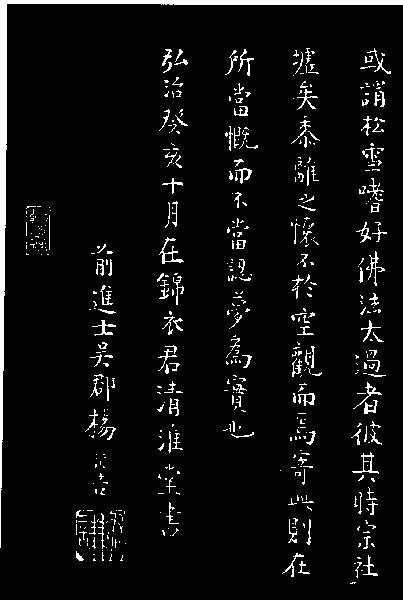 或誚松雪嗜好佛法太過者彼其時宗社
墟矣黍離之懷不於空觀而焉寄此則在
所當慨而不當認夢為實也
弘治癸亥十月在錦衣君清淮堂書
前進士吳郡楊循吉